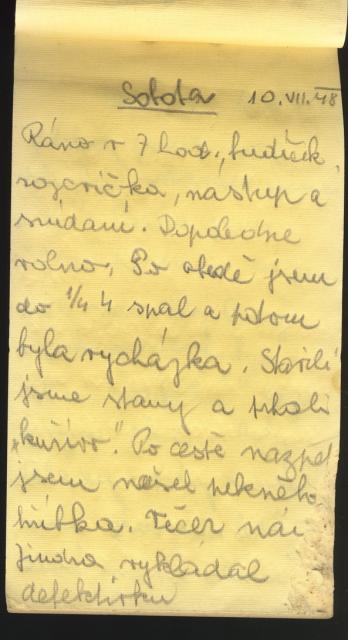 Sobota 10.VII.48
Ráno v 7 hod., budíček,
rozcvička, nástup a
snídaní. Dopoledne
volno, Po obědě jsem
do 1/4 4 spal a potom
byla vycházka. Stavěli
jsme stany a
Po cestě nazpět
jsem našel pekného
hříbka. Večer nám
Jindra vykládal
detektivku